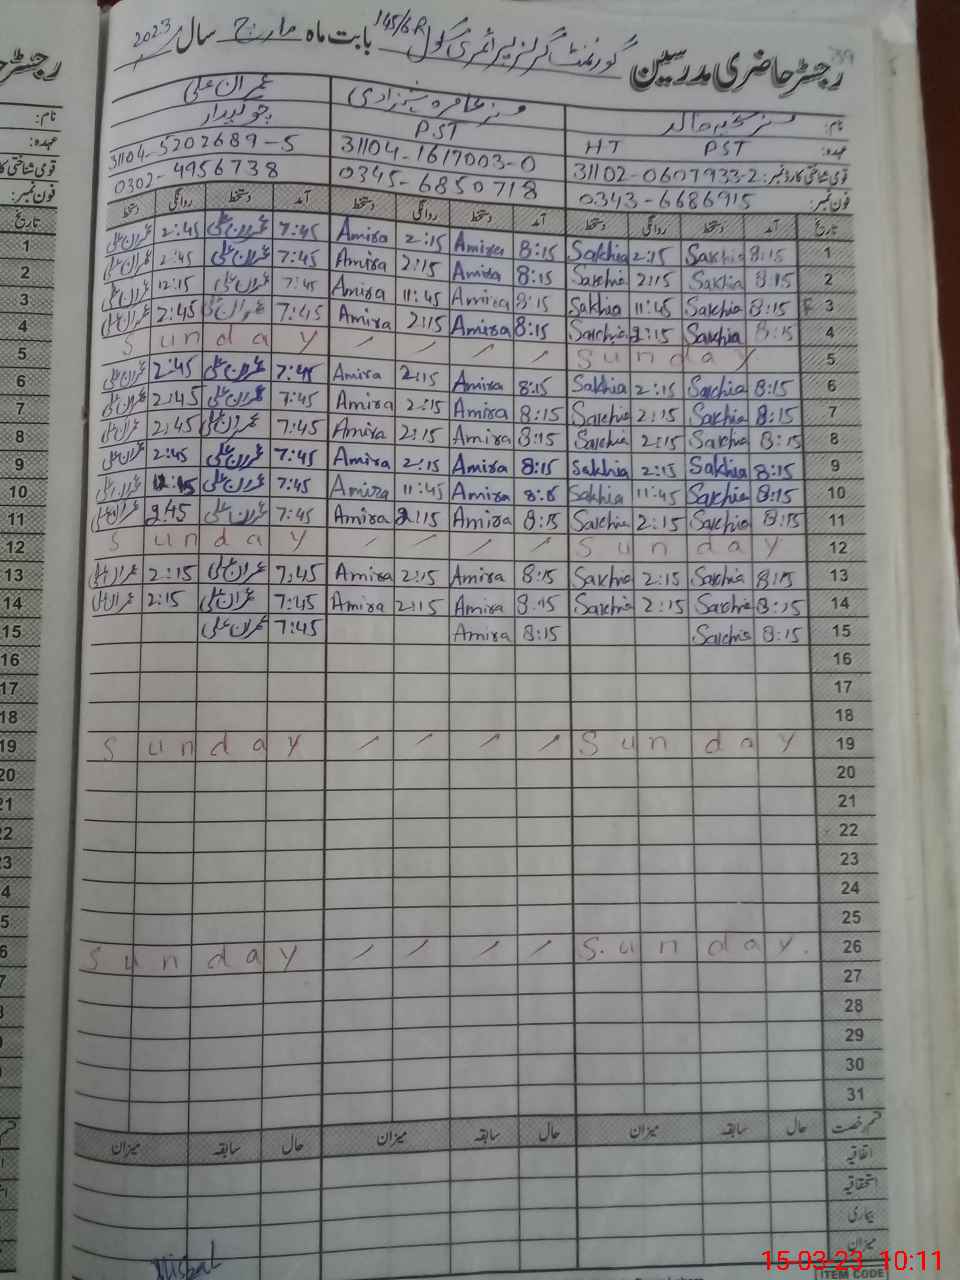 رجسٹر حاضری مدرسین گورنمنٹ گرلز پرائمری سکول 145/6R بابت ماہ مارچ سال 2023
نام: مسز خالد مسز عمران علی
عہدہ: HT PST PST چوکیدار
قومی شناختی کارڈ نمبر: 31102-0607933-2 31104-1617003-0 31104-5202689-5
فون نمبر: 0343-6686915 0345-6850718 0302-4956738
تاریخ آمد دستخط روانگی دستخط آمد دستخط روانگی دستخط آمد دستخط روانگی دستخط
1 8:15 Sakhia 2:15 Sakhia 8:15 Amira 2:15 Amira 7:45 عمران علی 2:45 عمران علی
2 8:15 Sakhia 2:15 Sakhia 8:15 Amira 2:15 Amira 7:45 عمران علی 2:45 عمران علی
3 8:15 Sakhia 11:45 Sakhia 8:15 Amira 11:45 Amira 7:45 عمران علی 12:15 عمران علی
4 8:15 Sakhia 2:15 Sakhia 8:15 Amira 2:15 Amira 7:45 عمران علی 2:45 عمران علی
5 Sunday Sunday
6 8:15 Sakhia 2:15 Sakhia 8:15 Amira 2:15 Amira 7:45 عمران علی 2:45 عمران علی
7 8:15 Sakhia 2:15 Sakhia 8:15 Amira 2:15 Amira 7:45 عمران علی 2:45 عمران علی
8 8:15 Sakhia 2:15 Sakhia 8:15 Amira 2:15 Amira 7:45 عمران علی 2:45 عمران علی
9 8:15 Sakhia 2:15 Sakhia 8:15 Amira 2:15 Amira 7:45 عمران علی 2:45 عمران علی
10 8:15 Sakhia 11:45 Sakhia Amira 11:45 Amira 7:45 عمران علی عمران علی
11 8:15 Sakhia 2:15 Sakhia 8:15 Amira 2:15 Amira 7:45 عمران علی 2:45 عمران علی
12 Sunday Sunday
13 8:15 Sakhia 2:15 Sakhia 8:15 Amira 2:15 Amira 7:45 عمران علی 2:15 عمران علی
14 8:15 Sakhia 2:15 Sakhia 8:15 Amira 2:15 Amira 7:45 عمران علی 2:15 عمران علی
15 8:15 Sakhia 8:15 Amira 7:45 عمران علی
16
17
18
19 Sunday Sunday
20
21
22
23
24
25
26 Sunday. Sunday
27
28
29
30
31
قسم رخصت حال سابقہ میزان حال سابقہ میزان حال سابقہ میزان
اتفاقیہ
استحقاقیہ
بیماری
میزان
15-03-23 10:11
ITEM CODE